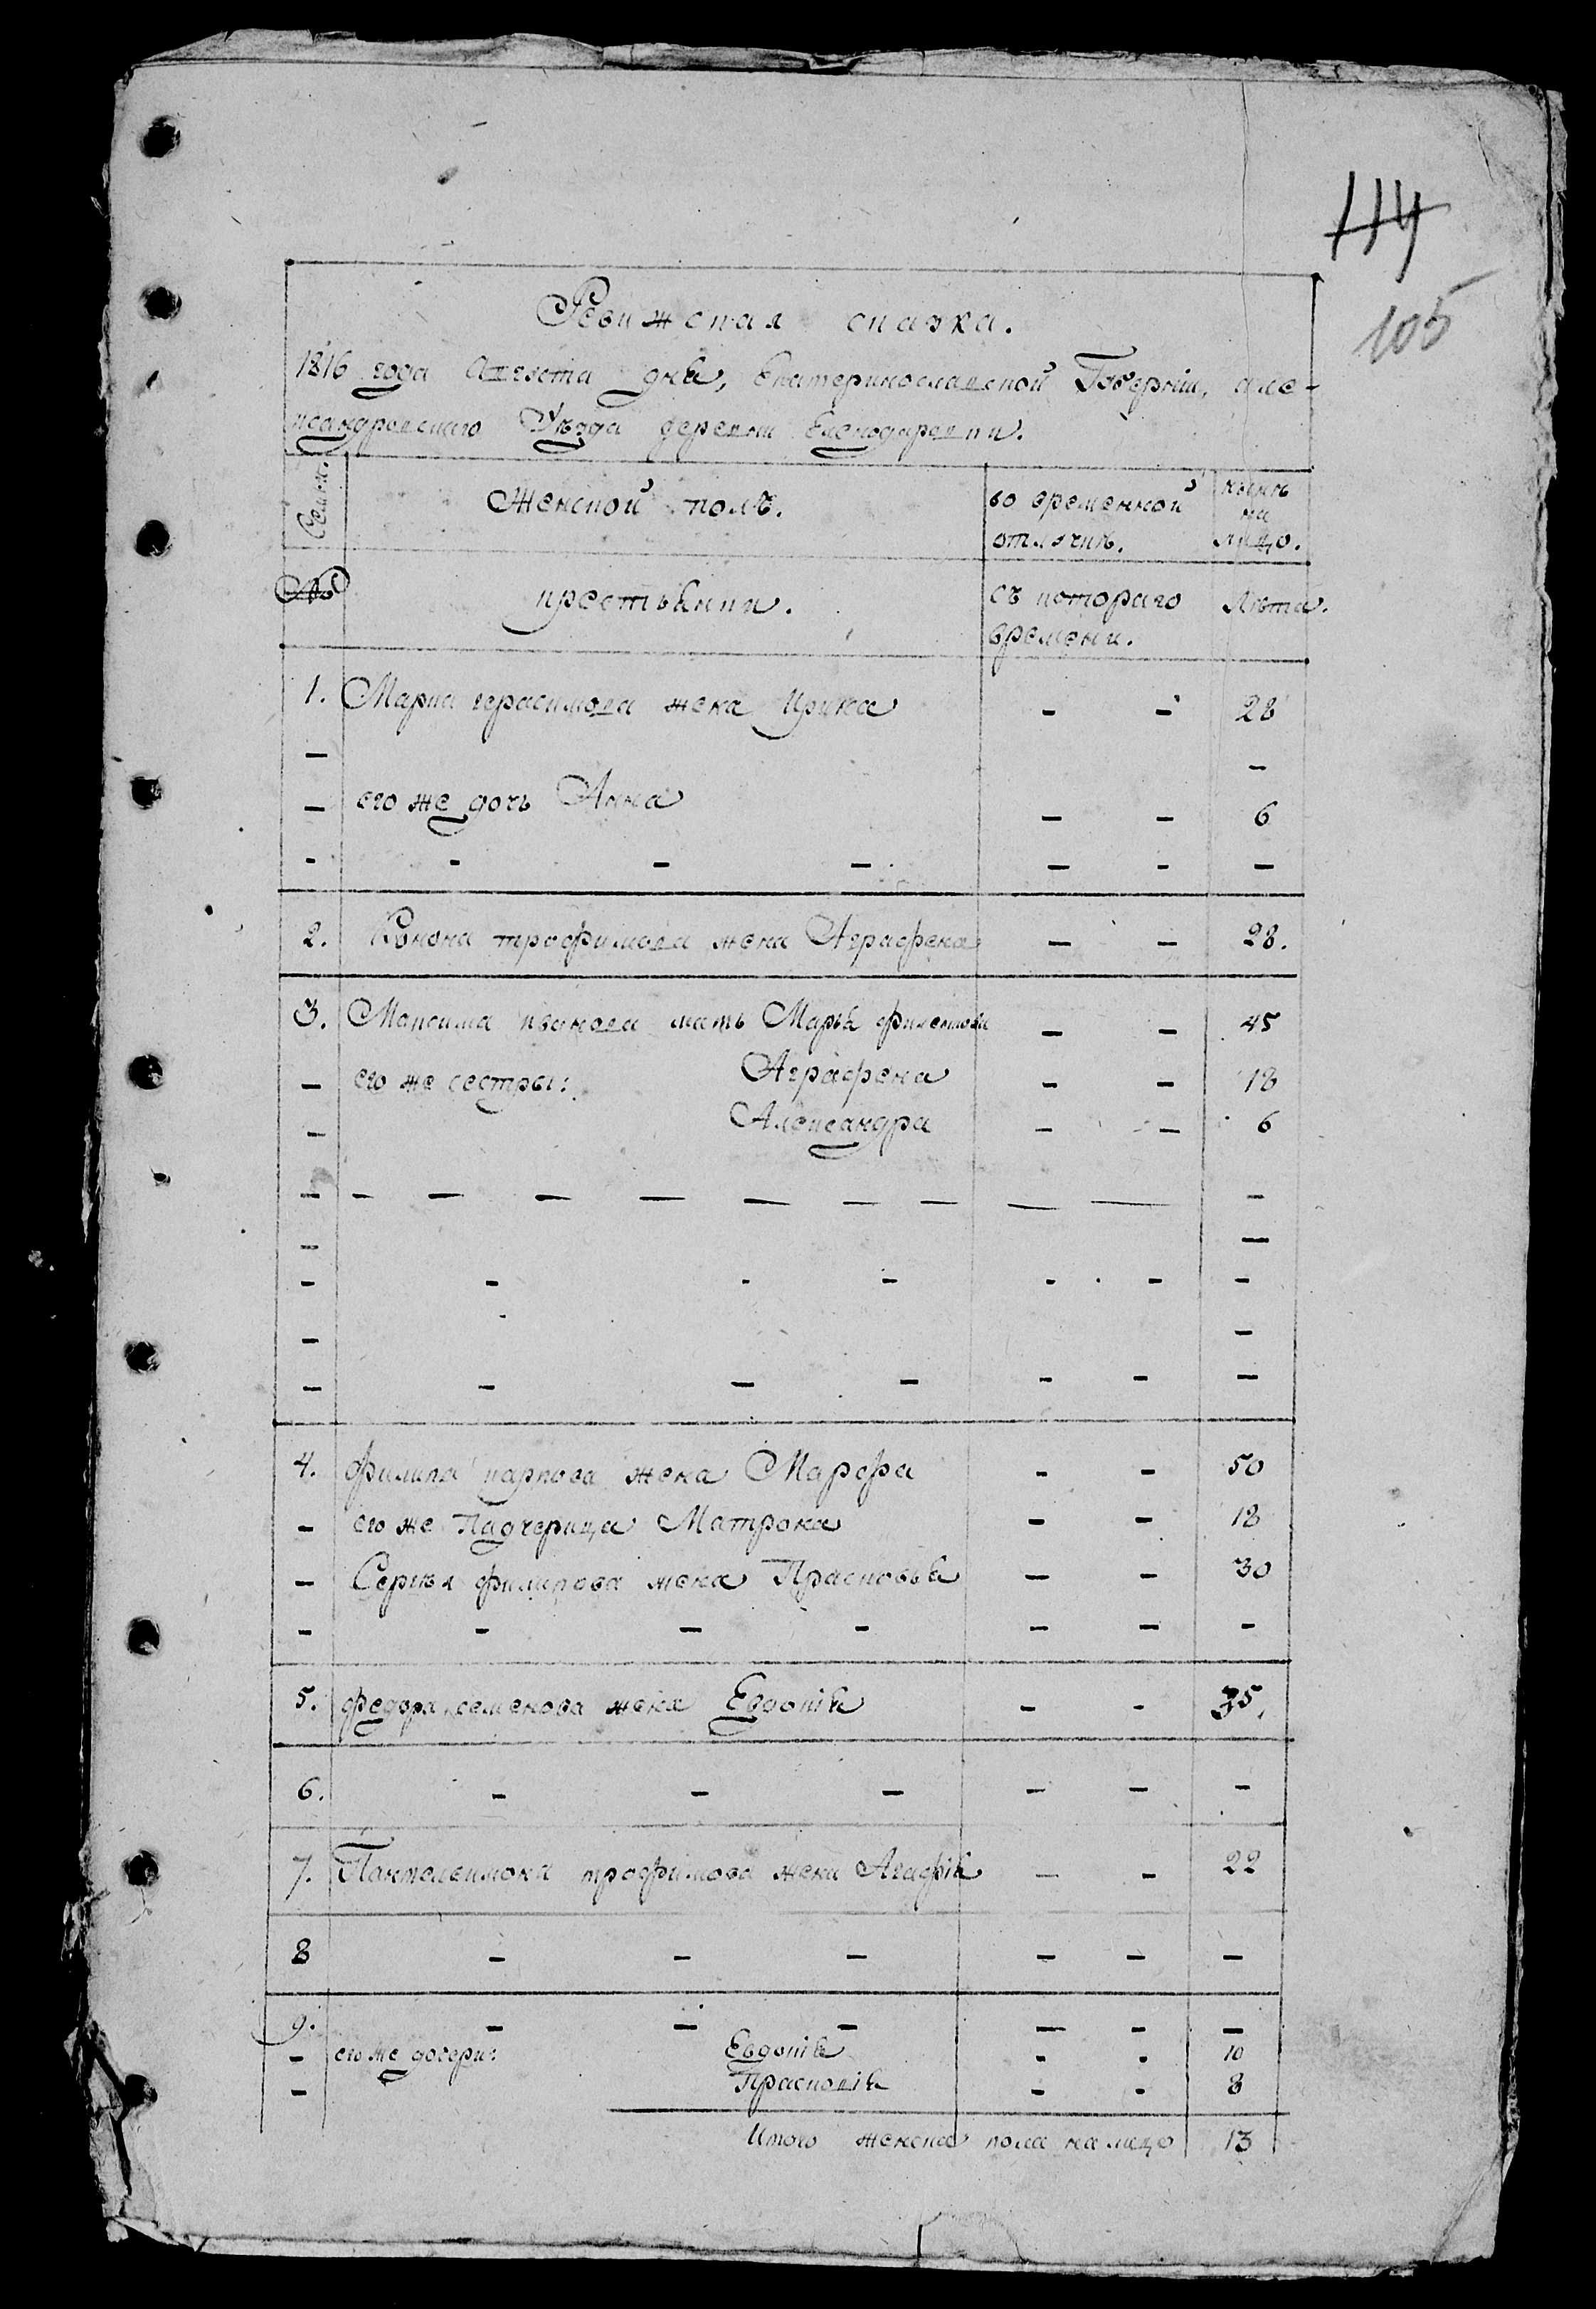 114
105
Ревижская сказка.
1816 года Августа дня, Екатеринославской Губернiи, Але-
ксандровскаго Уѣзда деревни Еленодаровки.
Семьи. Женской полъ. во временной отлучкѣ. нынѣ на лицо.
№ крестьянки. съ котораго времени. Лѣта.
1. Марка герасимова жена Ирина - - 28
— —
— его же дочь Анна — — 6
- - — — — - —
2. Конона трофимова жена Аграфена — — 28.
3. Максима иванова мать Марья филипова — — 45
— его же сестры: Аграфена — — 18
— Александра — — 6
— — — — — — — — — — —
— —
— — - — - - —
— —
— — — — - - —
4. филипа карпова жена Марфа - - 50
— его же Падчерица Матрона — — 18
— Сергѣя филипова жена Прасковья — — 30
— — — — — — —
5. федора семенова жена Евдокiя - - 35.
6. - — — — — -
7. Пантелеимона трофимова жена Агафiя — - 22
8 — — — — — —
9. — — — — — —
— его же дочери: Евдокiя - - 10
— Прасковiя - - 8
Итого женска пола на лицо 13